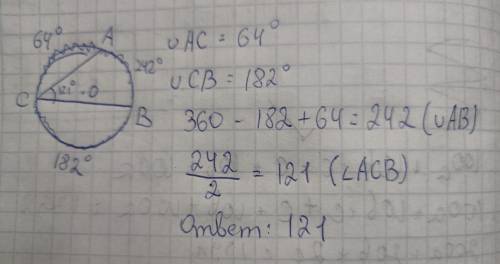 64°
A
242°
C
121°
O
B
182°
∪AC = 64°
∪CB = 182°
360 - 182 + 64 = 242 (∪AB)
242/2 = 121 (∠ACB)
Ответ: 121